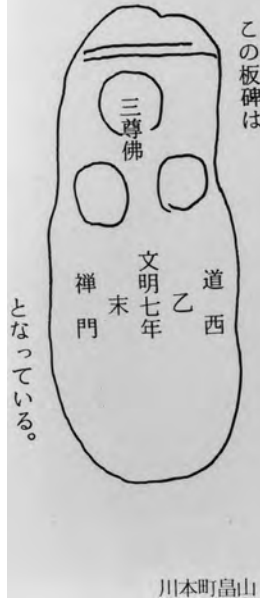 この板碑は
三尊佛
道西
乙
文明七年
末
禅門
となっている。
川本町畠山